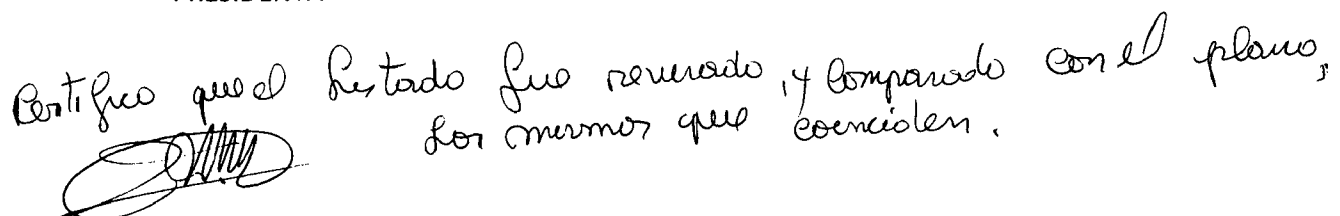 Certifico que el listado fue revisado, y comparado con el plano,
los mismos que coinciden.